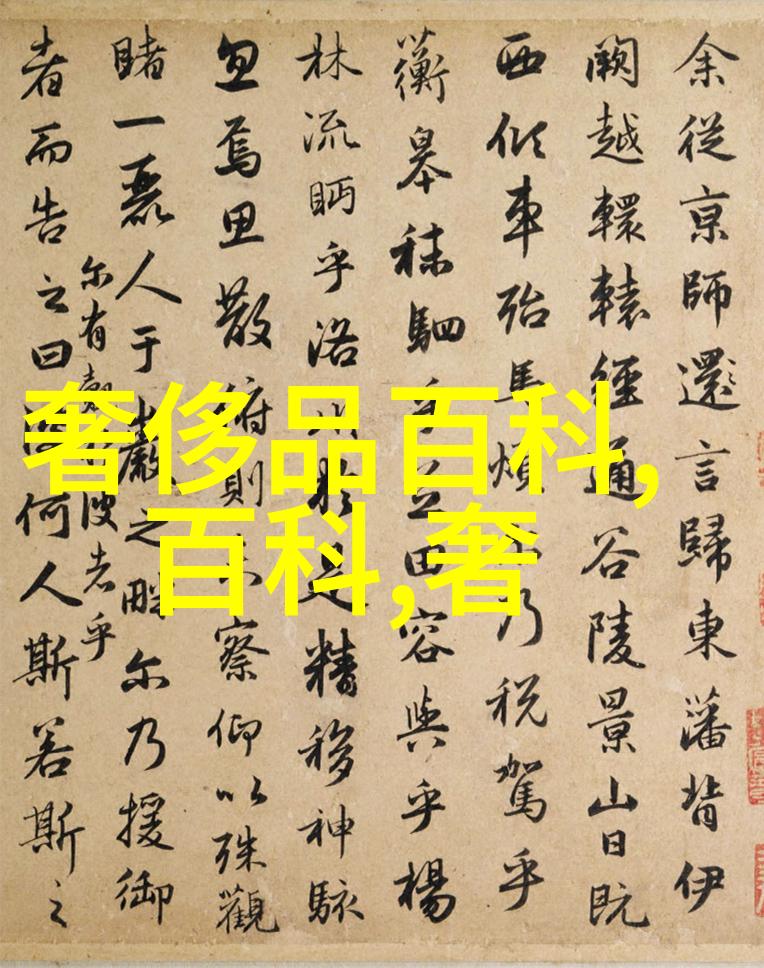 奢侈品百科,
百科,奢
余從京師還言歸東藩背伊
闕越轘轅經通谷陵景山日既
西傾車殆馬煩乃税駕乎
蘅皋秣駟乎芝田容與乎楊
林流眄乎洛川於是精移神駭
忽焉思散俯則未察仰以殊觀
睹一麗人于巖之畔尔乃援御
者而告之曰何人斯若斯之
尔有覿彼者乎